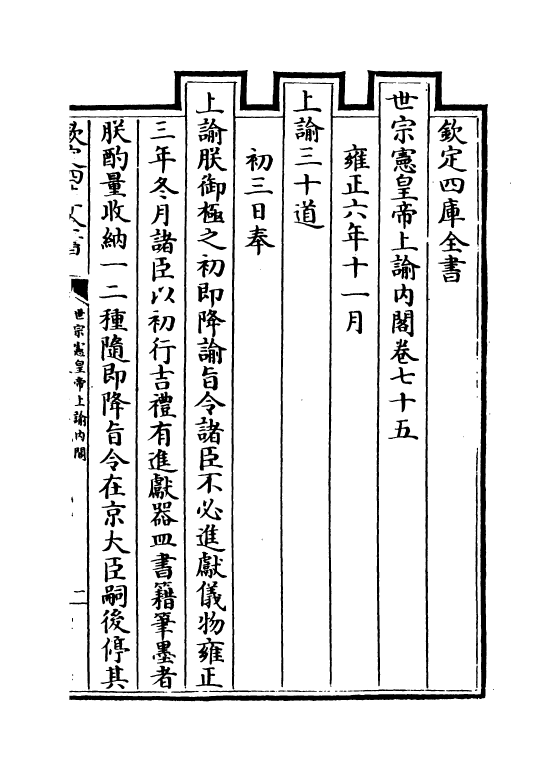 欽定四庫全書
世宗憲皇帝上諭內閣卷七十五
雍正六年十一月
上諭三十道
初三日奉
上諭朕御極之初即降諭旨令諸臣不必進獻儀物雍正
三年冬月諸臣以初行吉禮有進獻器皿書籍筆墨者
朕酌量收納一二種隨即降旨令在京大臣嗣後停其
世宗憲皇帝上諭內閣